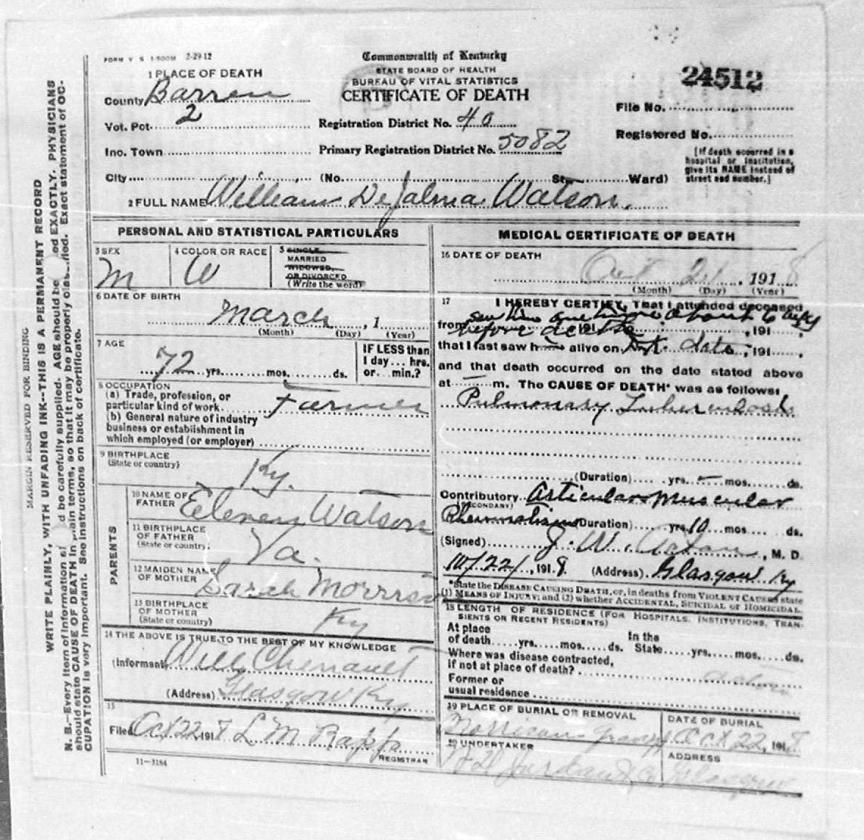 FORM V S 1-500M 2-29-12
Commonwealth of Kentucky
STATE BOARD OF HEALTH
BUREAU OF VITAL STATISTICS
CERTIFICATE OF DEATH
24512
1 PLACE OF DEATH
County Barren
Vot. Pct. 2
Inc. Town
City (No. St. Ward)
Registration District No. 40
Primary Registration District No. 5082
File No.
Registered No.
[If death occurred in a
hospital or institution,
give its NAME instead of
street and number.]
2 FULL NAME William DeJalma Watson.
MARGIN RESERVED FOR BINDING
WRITE PLAINLY, WITH UNFADING INK--THIS IS A PERMANENT RECORD
N. B.--Every item of information d be carefully supplied. AGE should be ed EXACTLY. PHYSICIANS
should state CAUSE OF DEATH in terms, so that it may be properly Exact statement of OC-
CUPATION is very important. See instructions on back of certificate.
PERSONAL AND STATISTICAL PARTICULARS
3 SEX M
4 COLOR OR RACE W
5 SINGLE,
MARRIED
WIDOWED,
OR DIVORCED
(Write the word)
6 DATE OF BIRTH
March , 1
(Month) (Day) (Year)
7 AGE
72 yrs. mos. ds.
IF LESS than
1 day... hrs.
or... min.?
8 OCCUPATION
(a) Trade, profession, or
particular kind of work. Farmer
(b) General nature of industry
business or establishment in
which employed (or employer)
9 BIRTHPLACE
(State or country) Ky.
PARENTS
10 NAME OF
FATHER Watson
11 BIRTHPLACE
OF FATHER
(State or country) Va.
12 MAIDEN NAME
OF MOTHER Sarah Morrison
13 BIRTHPLACE
OF MOTHER
(State or country) Ky
14 THE ABOVE IS TRUE TO THE BEST OF MY KNOWLEDGE
(Informant) Will Chenault
(Address) Glasgow Ky
15
Filed Oct 22, 1918 L M
REGISTRAR
11-3184
MEDICAL CERTIFICATE OF DEATH
16 DATE OF DEATH
Oct 21, 1918
(Month) (Day) (Year)
17 I HEREBY CERTIFY, That I attended deceased
from before death, 191
that I last saw h alive on date, 191
and that death occurred on the date stated above
at m. The CAUSE OF DEATH* was as follows:
Pulmonary Tuberculosis
(Duration) yrs. mos. ds.
Contributory Articular muscular
(SECONDARY)
Rheumatism (Duration) yrs 10 mos. ds.
(Signed) J. W. , M. D.
10/22/, 1918 (Address) Glasgow Ky
*State the DISEASE CAUSING DEATH, or, in deaths from VIOLENT CAUSES state
(1) MEANS OF INJURY; and (2) whether ACCIDENTAL, SUICIDAL or HOMICIDAL
18 LENGTH OF RESIDENCE (FOR HOSPITALS, INSTITUTIONS, TRAN-
SIENTS OR RECENT RESIDENTS)
At place In the
of death yrs. mos. ds. State yrs. mos. ds.
Where was disease contracted,
if not at place of death?
Former or
usual residence
19 PLACE OF BURIAL OR REMOVAL
Morrison
DATE OF BURIAL
Oct 22, 1918
20 UNDERTAKER
ADDRESS
Glasgow